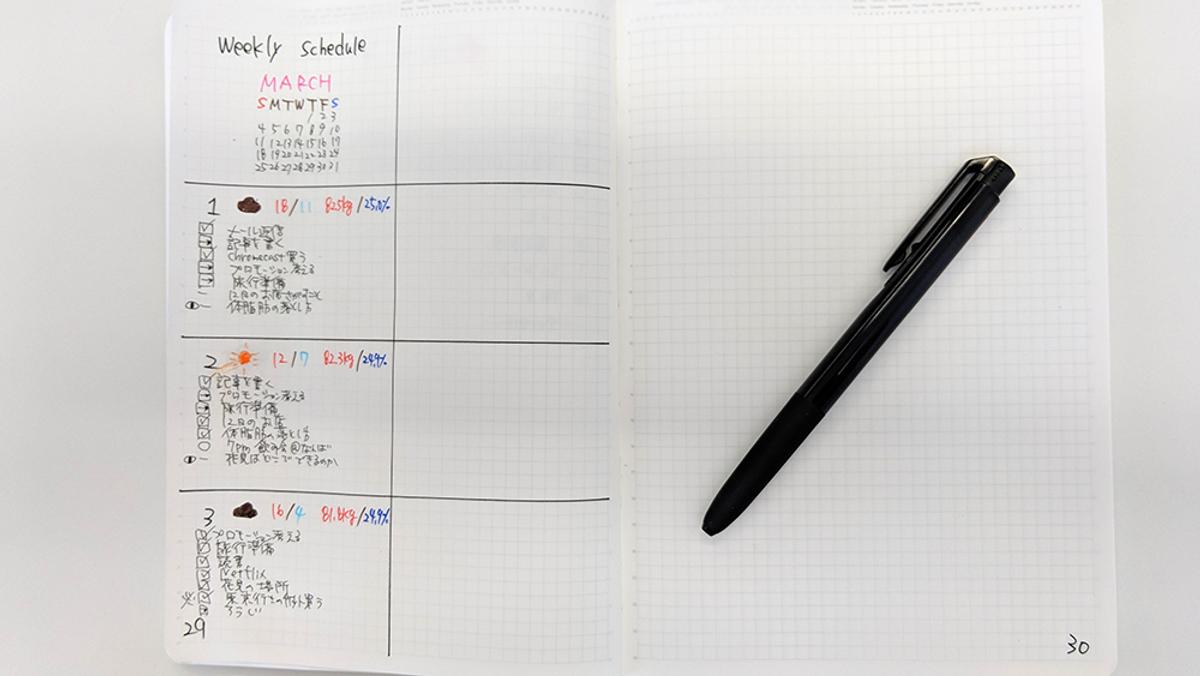 Weekly Schedule
MARCH
S M T W T F S
1 2 3
4 5 6 7 8 9 10
11 12 13 14 15 16 17
18 19 20 21 22 23 24
25 26 27 28 29 30 31
1 18/11 82.5kg/25.0%
メール返信
記事を書く
Chromecast買う
プロモーション考える
旅行準備
12日のお店さがすこと
体脂肪の落とし方
2 12/7 82.3kg/24.9%
記事を書く
プロモーション考える
旅行準備
12日のお店
体脂肪の落とし方
7pm 飲み会@なんば
花見はどこでできるのか
3 16/4 81.8kg/24.9%
プロモーション考える
旅行準備
読書
Netflix
花見の場所
東京行きの買う
そうじ
29
30